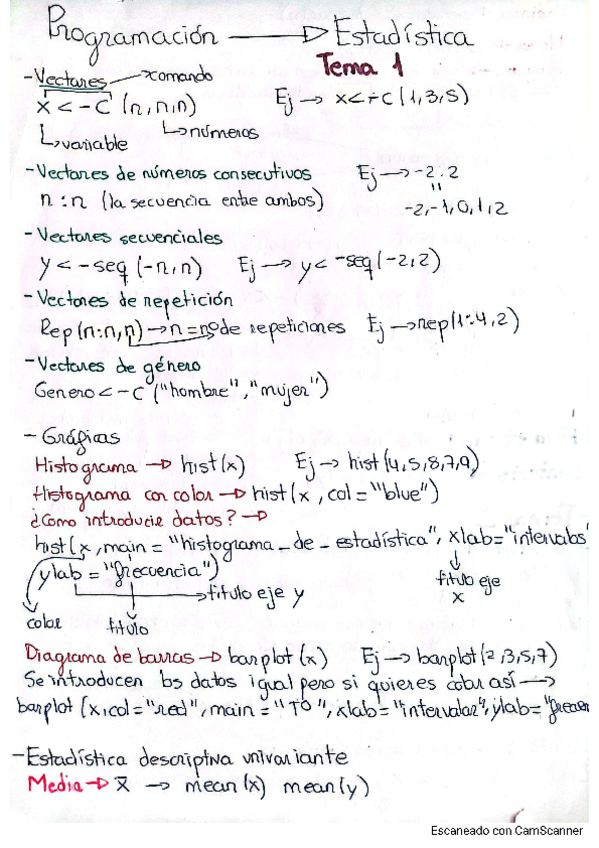 Programación → Estadística
Tema 1
- Vectores → comando
x <- C (n,n,n) Ej → x <- C(1,3,5)
↳ variable ↳ números
- Vectores de números consecutivos Ej → -2:2
n:n (la secuencia entre ambos) -2,-1,0,1,2
- Vectores secuenciales
y <- seq (-n,n) Ej → y <- seq(-2,2)
- Vectores de repetición
Rep(n:n,n) → n = nº de repeticiones Ej → rep(1:4,2)
- Vectores de género
Genero <- C ("hombre","mujer")
- Gráficas
Histograma → hist(x) Ej → hist(4,5,8,7,9)
Histograma con color → hist(x, col = "blue")
¿Como introducir datos? →
hist(x, main = "histograma_de_estadística", xlab="intervalos"
ylab = "frecuencia")
titulo eje x
titulo eje y
color titulo
Diagrama de barras → barplot(x) Ej → barplot(2,3,5,7)
Se introducen los datos igual pero si quieres color así →
barplot (x,col="red", main = "TO", xlab="intervalor", ylab="frecuen
- Estadística descriptiva univariante
Media → x̄ → mean(x) mean(y)
Escaneado con CamScanner